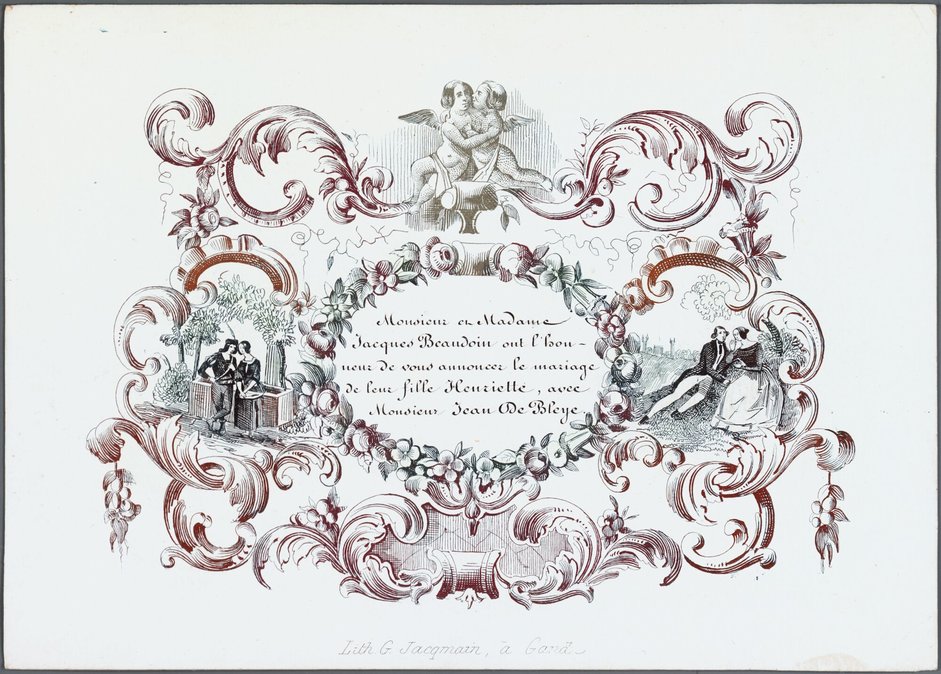 Monsieur et Madame
Jacques Beaudoin ont l'hon-
neur de vous annoncer le mariage
de leur fille Henriette, avec
Monsieur Jean De Bleye.
Lith G. Jacqmain, à Gand